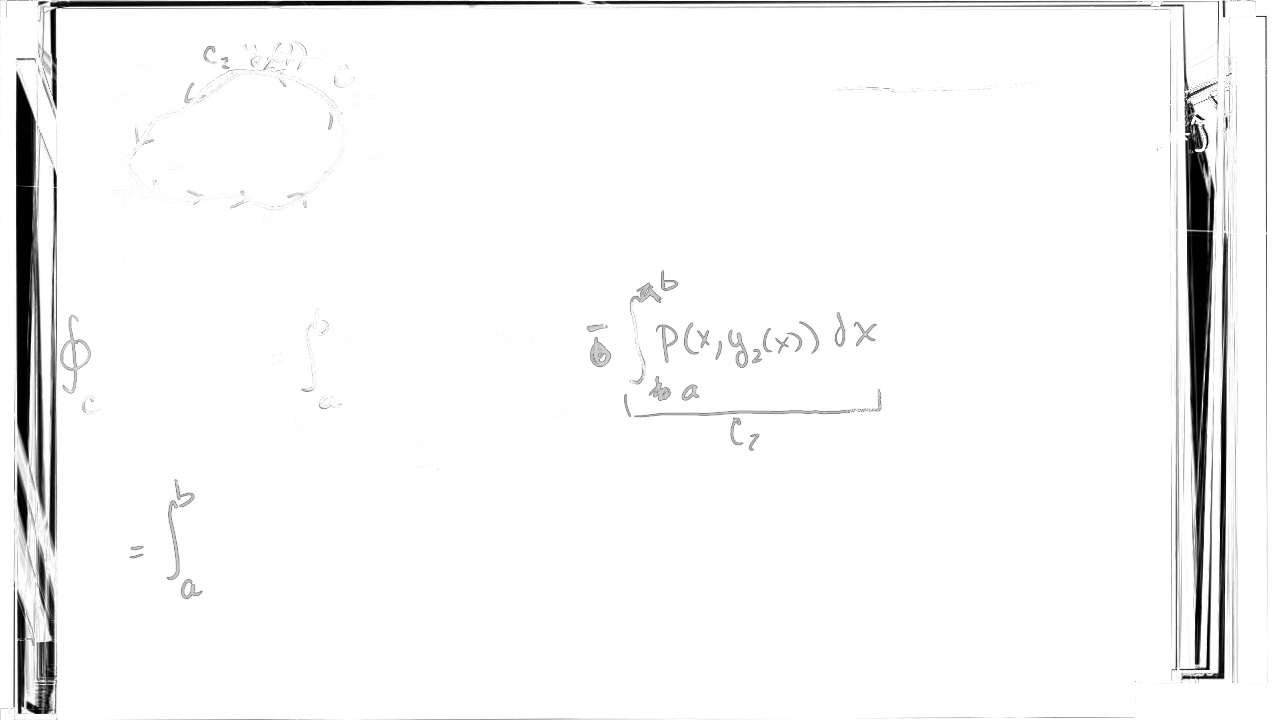 C₂ y₂(x) C
∮_C = ∫_a^b - ∫_a^b P(x, y₂(x)) dx
C₂
= ∫_a^b